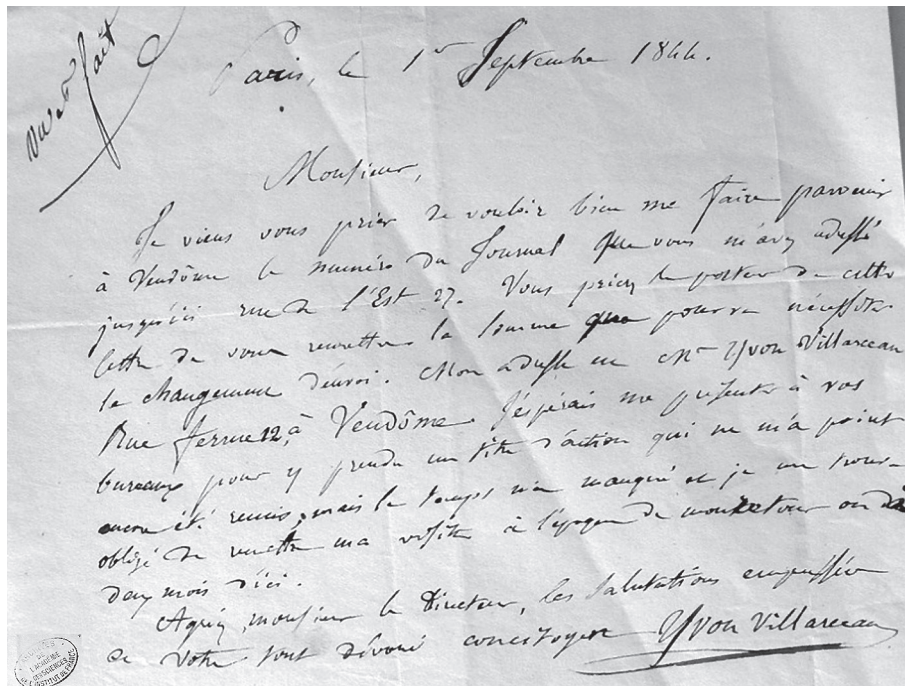 vu et fait
Paris, le 1er Septembre 1844.
Monsieur,
Je viens vous prier de vouloir bien me faire parvenir
à Vendôme le numéro du Journal que vous m'avez adressé
jusqu'ici rue de l'Est 27. Vous priez le porteur de cette
lettre de vous remettre la somme que pourra nécessiter
le changement d'envoi. Mon adresse est Mr Yvon Villarceau
Rue ferme 12, à Vendôme. J'espérais me présenter à vos
bureaux pour y prendre un titre d'action qui ne m'a point
encore été remis, mais le temps m'a manqué et je me trouve
obligé de remettre ma visite à l'époque de mon retour ou dà
deux mois d'ici.
Agréez, monsieur le Directeur, les salutations empressées
de votre tout dévoué concitoyen Yvon Villarceau
ARCHIVES
DE
L'ACADEMIE
DES SCIENCES
L'INSTITUT DE FRANCE